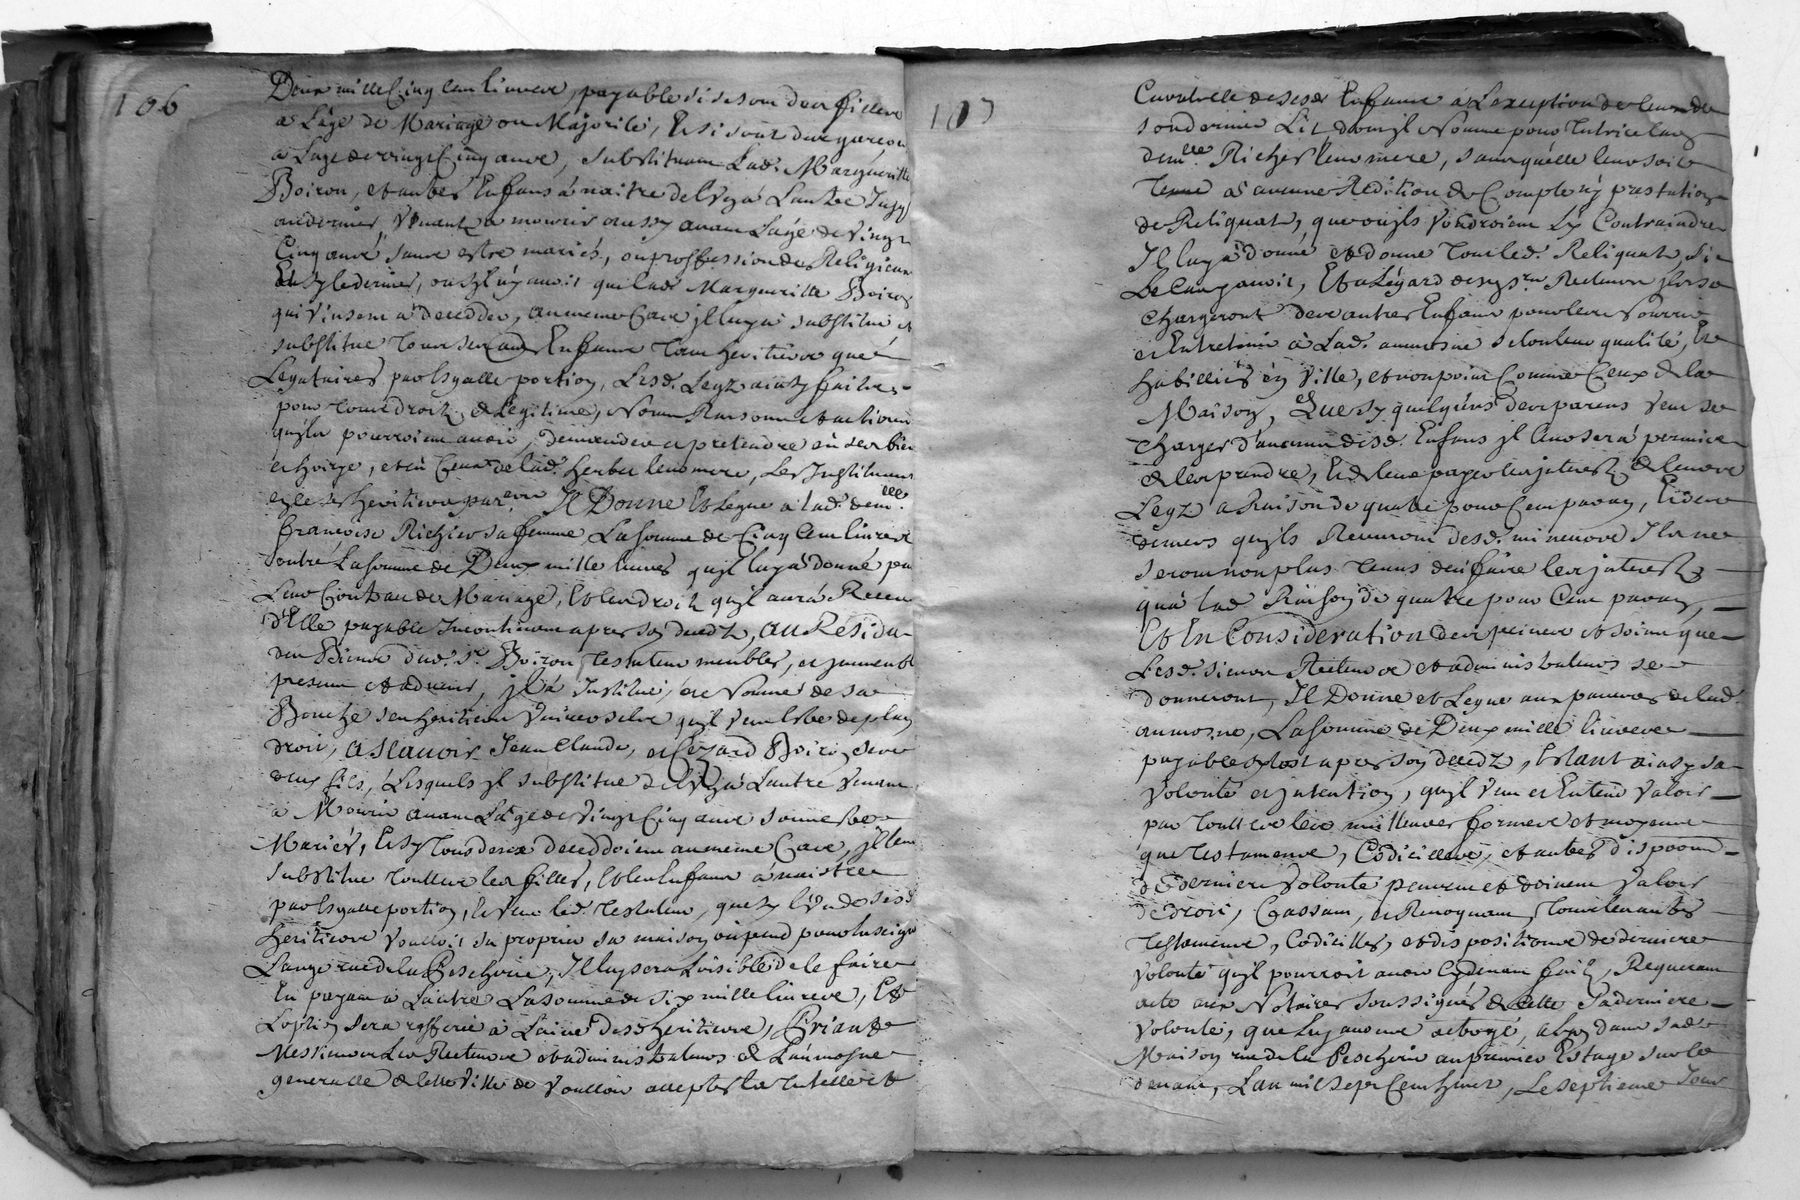 106
Deux mille Cinq Cent livres, payable si se sont des filles
a L'age de Mariage ou Majorité, Et si sont des garçons
a Lage de vingt Cinq ans, substituant Lad. Marguerite
Boiron, et autres Enfans á naitre de l'un á Lautre
au dernier, venant a mourir aussy avant L'age de vingt
Cinq ans sans estre mariés, ou proffession de Religieux
Et sy le dernier, ou syl ny avoit que lad. Marguerite Boiron
qui vinsent a decedder, au meme Cas jl luy a substitué et
substitue tous ses Enfans tant heritiers que
Legataires par Esgalle portion, Lesd. Legz ainsy faits
pour tout droitz de Legitime, Noms Raisons et actions
quils pourroient avoir, demander et pretendre en ses biens
et hoirye, et en Ceux de lad. herbu leur mere, Les Instituant
ses heritiers par.ers Il Donne Et Legue a lad. dem.lle
françoise Richier sa femme La somme de Cinq Cent livres
outre La somme de Deux mille livres quil luy a donné par
Leur Contrac de Mariage, Et les droitz quil aura Receu
d'Elle payable Incontinent apres son decedz, AU Résidu
des Biens dud. Sr. Boiron Testateur meubles, et jmmeubles
presents et advenir, jl a Institué, et Nommé de sa
Bouche ses heritiers Universels quil veut Estre de plain
droit, asçavoir Jean Claude, et Cezard Boiron ses
deux fils, Lesquels jl substitue de l'un á Lautre Venant
a Mourir avant L'age de Vingt Cinq ans sans estre
Mariés, Et sy tous deux deceddoient au meme Cas, jl leur
substitue touttes les filles, Et les Enfans a naistre
par Esgalle portion, Et veut led. Testateur, que sy l'un de sesd.
heritiers vouloit sa proprier sa maison ou pend pour Enseigne
Lange rue de la Pescherie, Il luy sera Loisible de le faire
En payant a Lautre La somme de six mille livres, Et
Loption sera refferée a Lainé desd. heritiers, Priant
Messieurs Les Recteurs et administrateurs de L'aumosne
generalle de cette Ville de vouloir accepter la tutelle et
107
Curatelle de sesd. Enfans á L'exception de Ceux de
son dernier Lit dont jl Nomme pour tutrice lad.
dem.lle Richier leur mere, sans quelle leur soit
tenue á aucune Redition de Compte ny prestation
de Reliquat, que ou jls voudroient L'y Contraindre
Il luy a donné et donne tout led. Reliquat, si
Le Cas y avoit, Et a Légard desd. Srs. Recteurs jls se
chargeront des autres Enfans pour les Nourrir
et Entretenir á Lad. aumosne selon leur qualité, Et
habilliés en Ville, et non point Comme Ceux de la
Maison, Que sy quelqu'uns des parens veut se
charger d'aucun desd. Enfans jl leur sera permis
de les prendre, Et de leur payer les jnterestz de leurs
Legz a Raison de quatre pour Cent par an, Et des
deniers quils Recevront desd. mineurs Ils ne
seront non plus tenus d'en faire les jnterestz
quá lad. Raison de quatre pour Cent par an,
Et En Consideration des peines et soins que
Lesd. sieurs Recteurs et administrateurs se
donneront, Il Donne et Legue aux pauvres de lad.
aumosne, La somme de Deux mille livres
payable sytost apres son decedz, Estant ainsy sa
volonté et jntention, quil veut et Entend valoir
par touttes les meilleures formes et moyens
que Testamens, Codicilles, et autres dispositions
de derniere volonté peuvent et doivent valoir
de droit, Cassant, et Revoquant, tous les autres
Testamens, Codicilles, et dispositions de derniere
volonté quil pourroit avoir Cydevant faits, Requerant
acte aux Notaires soussignés de cette sa derniere
volonté, que Luy avons octroyé, a Lyon dans sad.
Maison rue de la Pescherie au premier Estage sur le
devant, L'an mil sept Cent huict, Le septieme Jour